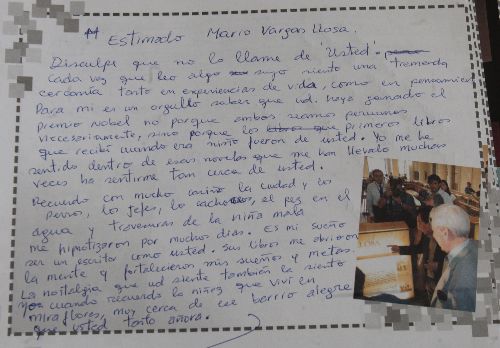 Estimado Mario Vargas Llosa.
Disculpe que no lo llame de "Usted".
Cada vez que leo algo suyo siento una tremenda
cercanía tanto en experiencias de vida, como en pensamien
Para mi es un orgullo saber que ud. haya ganado el
premio Nobel no porque ambos seamos peruanos
necesariamente, sino porque los primeros libros
que recibí cuando era niño fueron de usted. Yo me he
sentido dentro de esas novelas que me han llevado muchas
veces ha sentirme tan cerca de usted.
Recuerdo con mucho cariño la ciudad y los
perros, los jefes, los cachorros, el pez en el
agua y travesuras de la niña mala
me hipnotizaron por muchos dias. Es mi sueño
ser un escritor como usted. Sus libros me abrieron
la mente y fortalecieron mis sueños y metas.
La nostalgia que ud siente también la siento
yo cuando recuerdo la niñez que viví en
miraflores, muy cerca de ese barrio alegre
que usted tanto añora.